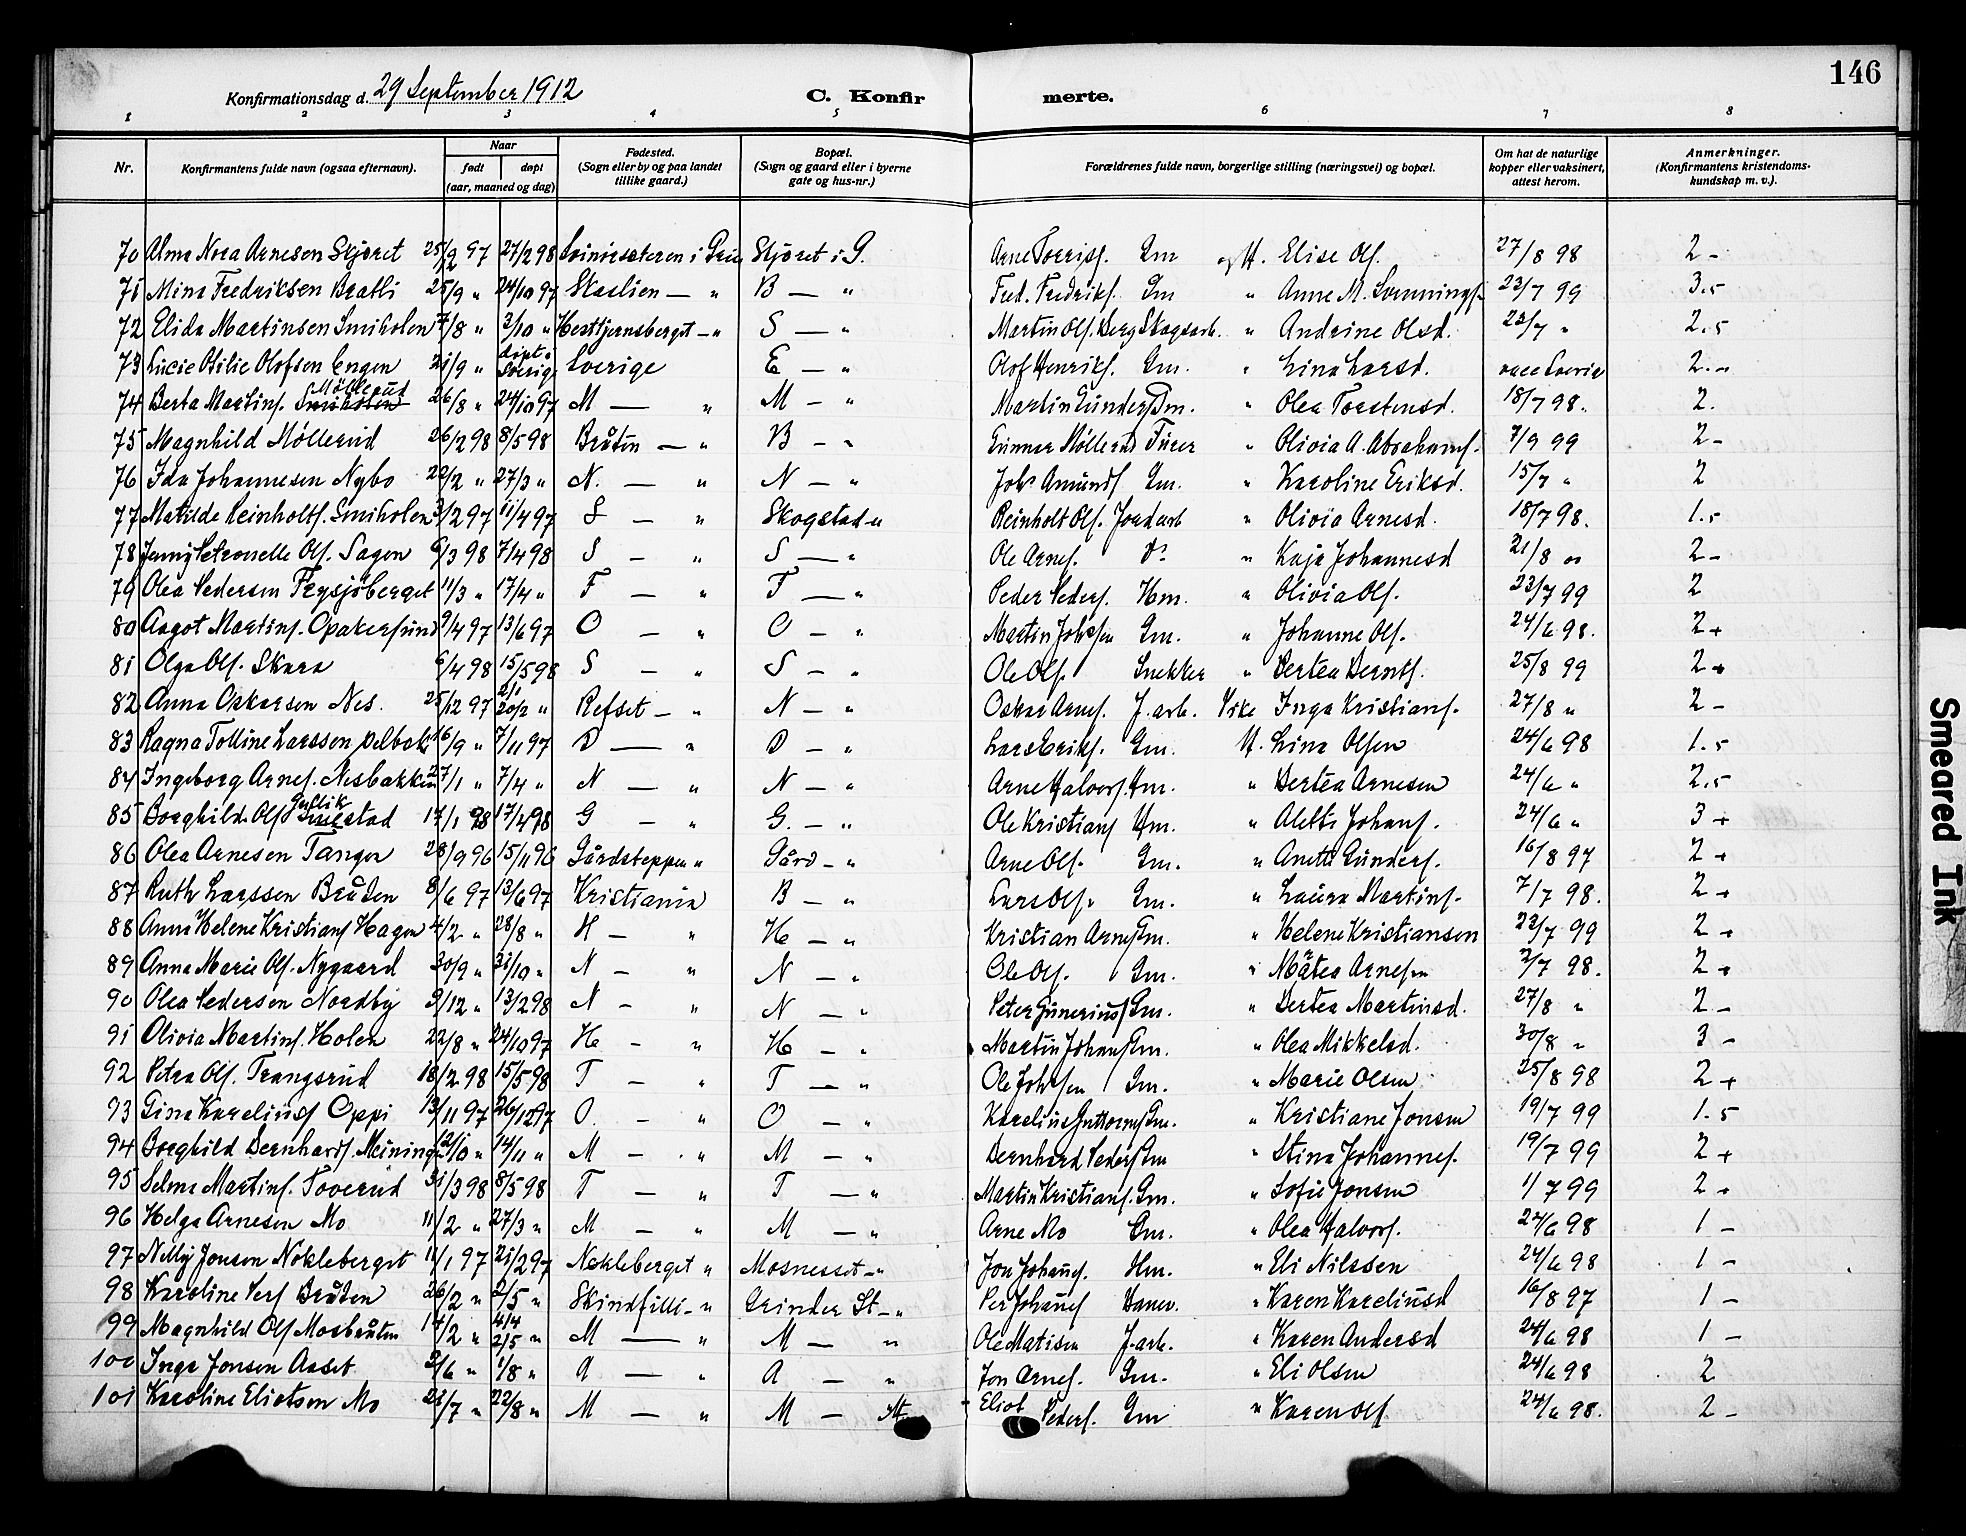 146
Konfirmationsdag d. 29 September 1912 C. Konfir merte.
1 2 3 4 5 6 7 8
Nr. Konfirmantens fulde navn (ogsaa efternavn). Naar født døpt (aar, maaned og dag) Fødested. (Sogn eller by og paa landet tillike gaard.) Bopæl. (Sogn og gaard eller i byerne gate og hus-nr.) Forældrenes fulde navn, borgerlige stilling (næringsvei) og bopæl. Om hat de naturlige kopper eller vaksinert, attest herom. Anmerkninger. (Konfirmantens kristendoms-kundskap m. v.).
70 Alma Nora Arnesen Skjøret 25/9 97 27/2 98 i Skjøret i G. Arne Gm og H. Elise Ols. 27/8 98 2 -
71 Mina Fredriksen Bratli 25/9 " 24/10 97 Skaslien — " B — " Fred. Fredriks. Gm " Anne M. 23/7 99 3.5
72 Elida Martinsen Smiholen 7/8 " 3/10 " Hesttjernsberget - " S — " Martin Ols. Berg Skogsarb. " Andrine Olsd. 23/7 " 2.5
73 Lucie Otilie Olofsen Engen 21/9 " døpt i Sverig. Sverige E — " Olof Henriks. Gm. " Lina Larsd. vacc Sverig 2.
74 Berta Martins. Smiholen Möllerud 26/8 " 24/10 97 M — " M — " Martin Gunders. Gm. " Olea Torstensd. 18/7 98. 2.
75 Magnhild Möllerud 26/2 98 8/5 98 Bråten — " B — " Gunnar Möllerud Furer " Olivia A. Abrahams. 7/9 99 2 -
76 Ida Johannesen Nybo 22/2 " 27/3 " N. — " N — " Johs Amunds Gm. " Karoline Eriksd. 15/7 " 2
77 Matilde Reinholts. Smiholen 3/2 97 11/4 97 S — " Skogstad " Reinholt Ols. Jordarb " Olivia Arnesd. 18/7 98. 1.5
78 Jenny Petronelle Ols. Sagen 6/3 98 7/4 98 S — " S — " Ole Arnes. do " Kaja Johannesd 21/8 00 2 -
79 Olea Pedersen Frysjöberget 11/3 " 17/4 " F — " F — " Peder Peders. Hm. " Olivia Ols. 23/7 99 2
80 Aagot Martins. Opakersund 9/4 97 13/6 97 O — " O — " Martin Johsen Gm. " Johanne Ols. 24/6 98. 2 +
81 Olga Ols. Skara 6/4 98 15/5 98 S — " S — " Ole Ols. Snekker " Bertea Bernts. 25/8 99 2 +
82 Anna Oskarsen Nes. 25/12 97 2/1 20/2 " Refset — " N — " Oskar Arnes. J.arb. Pike Inga Kristians. 27/8 " 2 -
83 Ragna Tolline Larssen Delbek 16/9 " 7/11 97 D — " D — " Lars Eriks. Gm. H. Lina Olsen 24/6 98 1.5
84 Ingeborg Arnes. Nesbakken 27/1 " 7/4 " N — " N — " Arne Halvors. Hm. " Bertea Arnesen 24/6 " 2.5
85 Borghild Ols 17/1 98 17/4 98 G — " G. — " Ole Kristians Hm. " Alette Johans. 24/6 " 3 +
86 Olea Arnesen Tangen 28/9 96 15/11 96 Gårdsteppen " Gård - " Arne Ols. Gm. " Anette Gunders. 16/8 97 2 +
87 Ruth Larssen Bråden 8/6 97 13/6 97 Kristiania B — " Lars Ols. Gm. " Laura Martins. 7/7 98. 2 +
88 Anna Helene Kristians Hagen 4/2 " 28/8 " H — " H — " Kristian Arnes Gm. " Helene Kristiansen 23/7 99 2 +
89 Anna Marie Ols. Nygaard 30/9 " 31/10 " N — " N — " Ole Ols. Gm. " Mätea Arnesen 2/7 98. 2 +
90 Olea Pedersen Nordby 9/12 " 13/2 98 N — " N — " Peter Gunerius Gm. " Bertea Martinsd. 27/8 " 2 -
91 Olivia Martins. Holen 22/8 " 24/10 97 H — " H — " Martin Johans Gm. " Olea Mikkelsd. 30/8 " 3 -
92 Petra Ols. Trangsrud 18/2 98 15/5 98 T — " T — " Ole Johsen Gm. " Marie Olsen 25/8 98 2 +
93 Gina Karelius Oppi 13/11 97 26/12 97 O. — " O — " Karelius Guttorms Gm. " Kristiane Jonsen 19/7 99 1.5
94 Borghild Bernhards. Meininge 12/10 " 14/11 " M — " M — " Bernhard Peders Gm " Stina Johannes. 19/7 99 2 +
95 Selma Martins. Toverud 31/3 98 8/5 98 T — " T — " Martin Kristians. Gm. " Sofie Jonsen 1/7 99 2 +
96 Helga Arnesen Mo 11/2 " 27/3 " M — " M — " Arne Mo Gm. " Olea Halvors. 24/6 98 1 -
97 Nelly Jonsen Nokleberget 11/1 97 21/2 97 Nokleberget " Mosnesset - " Jon Johans. Hm. " Eli Nilssen 24/6 98 1 -
98 Karoline Pers Bråten 26/2 " 2/5 " Skindfilli - " Grinder St - " Per Johans Banev. " Karen Kareliusd 16/8 97 1 -
99 Magnhild Ols Mosbråten 14/2 " 4/4 2/5 " M — " M — " Ole Matisen J.arb. " Karen Andersd 24/6 98 1 -
100 Inga Jonsen Aaset 2/6 " 1/8 " A — " A — " Jon Arnes. Gm. " Eli Olsen 24/6 98 2
101 Karoline Eliotsen Mo 21/7 " 22/8 " M — " M — Eliot Peders. Gm " Karen Ols 24/6 98. 2 -
Smeared Ink